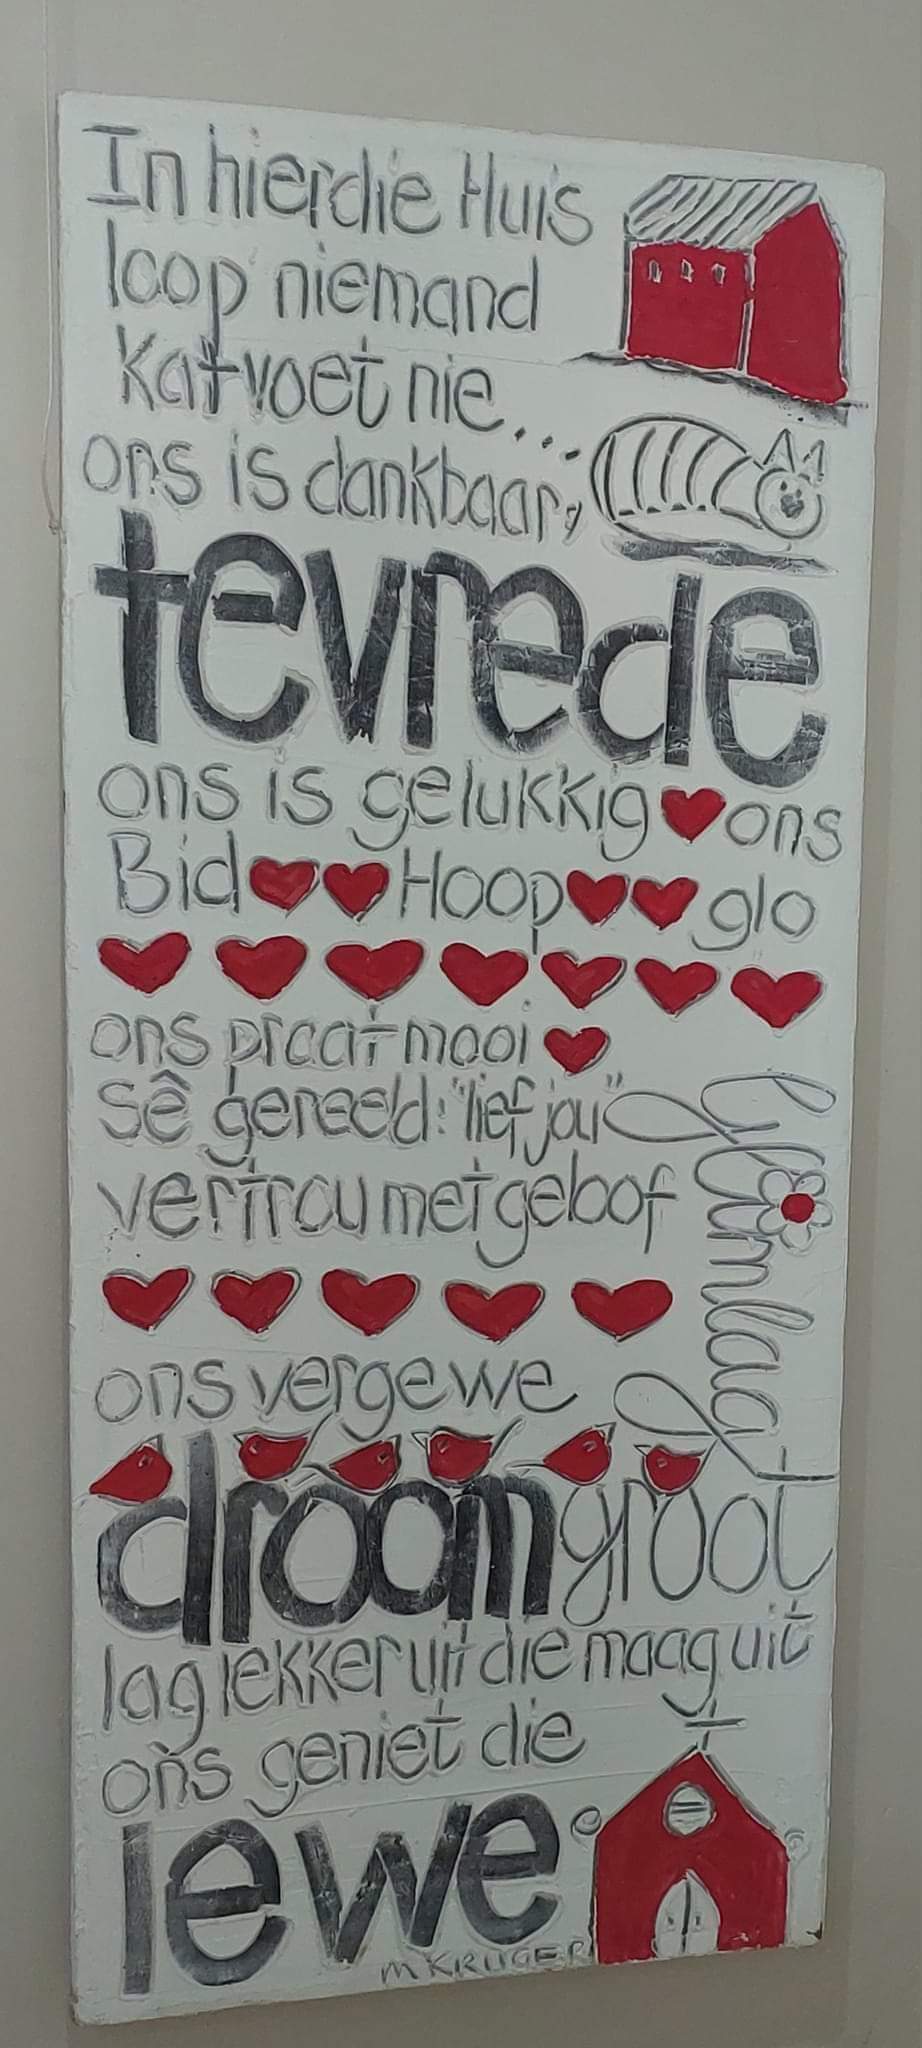 In hierdie Huis
loop niemand
Katvoet nie...
ons is dankbaar,
tevrede
ons is gelukkig ons
Bid Hoop glo
ons praat mooi
sê gereeld: "lief jou"
vertrou met geloof
glimlag
ons vergewe
droom groot
lag lekker uit die maag uit
ons geniet die
lewe
M KRUGER